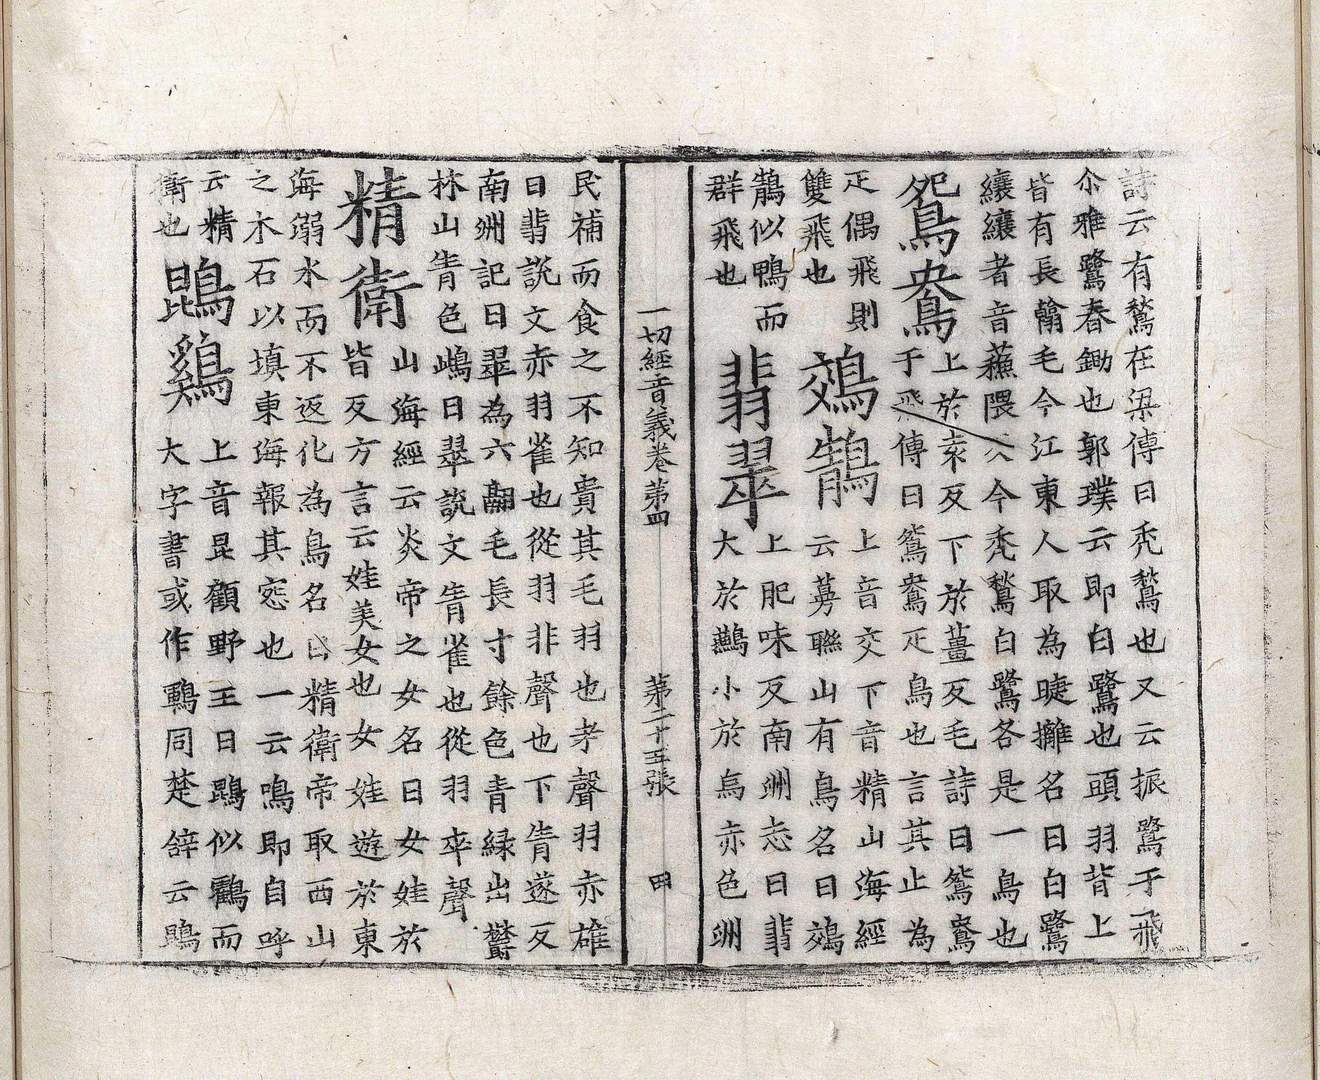 詩云有鶖在梁傳曰禿鶖也又云振鷺于飛
尒雅鷺舂鋤也郭璞云即白鷺也頭羽背上
皆有長翰毛今江東人取為睫攡名曰白鷺
纕纕者音蘓隈反今禿鶖白鷺各是一鳥也
鴛鴦
上於袁反下於薑反毛詩曰鴛鴦
于飛傳曰鴛鴦疋鳥也言其止為
疋偶飛則
雙飛也
鵁鶄
上音交下音精山海經
云蔓聯山有鳥名曰鵁
鶄似鴨而
群飛也
翡翠
上肥味反南洲志曰翡
大於鷰小於烏赤色洲
一切經音義卷第四 第二十五張 田
民補而食之不知貴其毛羽也孝聲羽赤雄
曰翡説文赤羽雀也從羽非聲也下青遂反
南洲記曰翠為六翮毛長寸餘色青緑出欝
林山青色嶋曰翠説文青雀也從羽卒聲
精衛
山海經云炎帝之女名曰女娃於
皆反方言云娃美女也女娃遊於東
海溺水而不返化為鳥名曰精衛帝取西山
之木石以填東海報其惌也一云鳴即自呼
云精
衛也
鵾鷄
上音昆顧野王曰鵾似鸖而
大字書或作鶤同楚辝云鵾